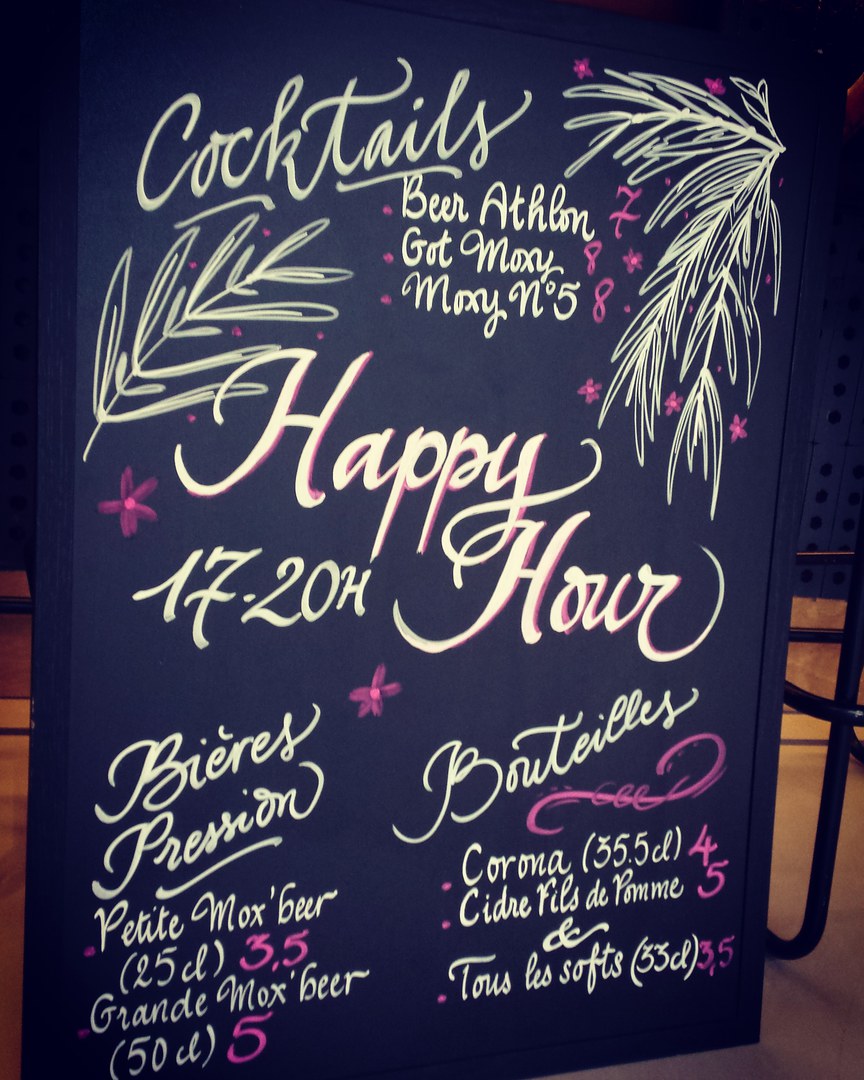 Cocktails
Beer Athlon 7
Got Moxy 8
Moxy N°5 8
Happy
Hour
17-20H
Bières
Pression
Petite Mox'beer
(25cl) 3,5
Grande Mox'beer
(50cl) 5
Bouteilles
Corona (35.5cl) 4
Cidre Fils de Pomme 5
&
Tous les softs (33cl) 3,5